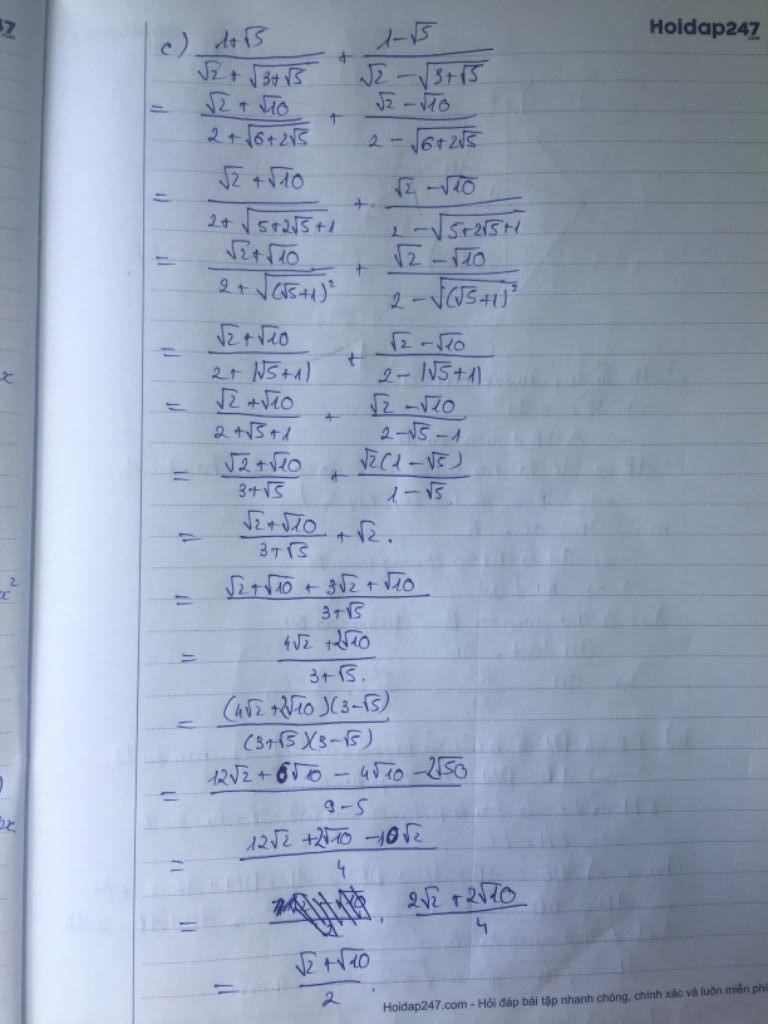 Hoidap247
.com
c) (1+√5)/(√2 + √(3+√5)) + (1-√5)/(√2 - √(3+√5))
= (√2 + √10)/(2 + √(6+2√5)) + (√2 - √10)/(2 - √(6+2√5))
= (√2 + √10)/(2 + √(5+2√5+1)) + (√2 - √10)/(2 - √(5+2√5+1))
= (√2+√10)/(2 + √((√5+1)²)) + (√2 - √10)/(2 - √((√5+1)²))
= (√2+√10)/(2 + |√5+1|) + (√2 - √10)/(2 - |√5+1|)
= (√2 + √10)/(2+√5+1) + (√2 - √10)/(2-√5-1)
= (√2+√10)/(3+√5) + √2(1-√5)/(1-√5)
= (√2+√10)/(3+√5) + √2.
= (√2+√10 + 3√2 + √10)/(3+√5)
= (4√2 + 2√10)/(3+√5).
= (4√2+2√10)(3-√5)/(3+√5)(3-√5)
= (12√2 + 6√10 - 4√10 - 2√50)/(9-5)
= (12√2 + 2√10 - 10√2)/4
= (2√2 + 2√10)/4
= (√2 + √10)/2.
Hoidap247.com - Hỏi đáp bài tập nhanh chóng, chính xác và luôn miễn phí